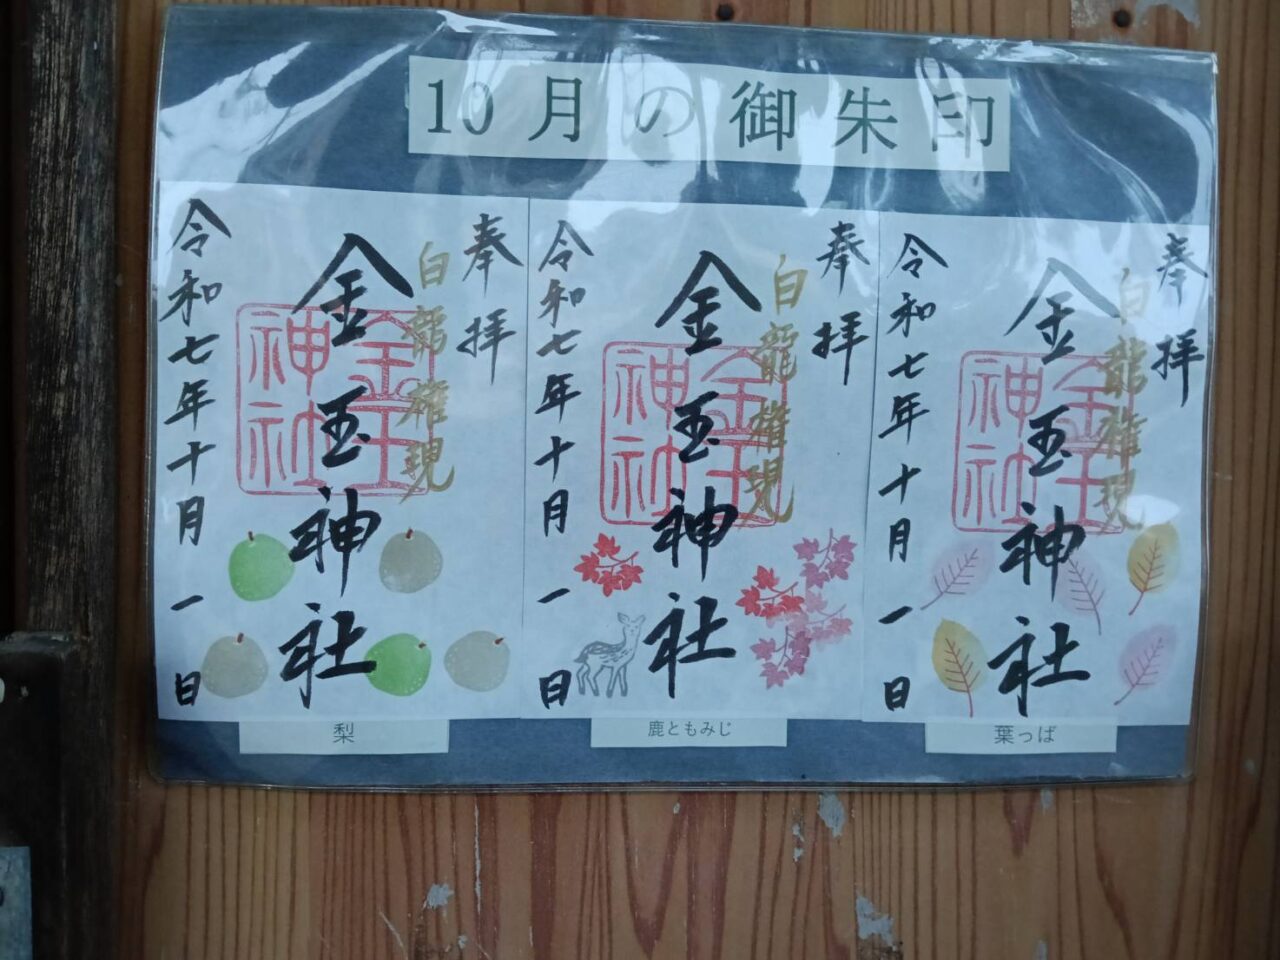 10月の御朱印
奉拝
白龍権現
金玉神社
金玉神社
令和七年十月一日
梨
奉拝
白龍権現
金玉神社
金玉神社
令和七年十月一日
鹿ともみじ
奉拝
白龍権現
金玉神社
金玉神社
令和七年十月一日
葉っぱ